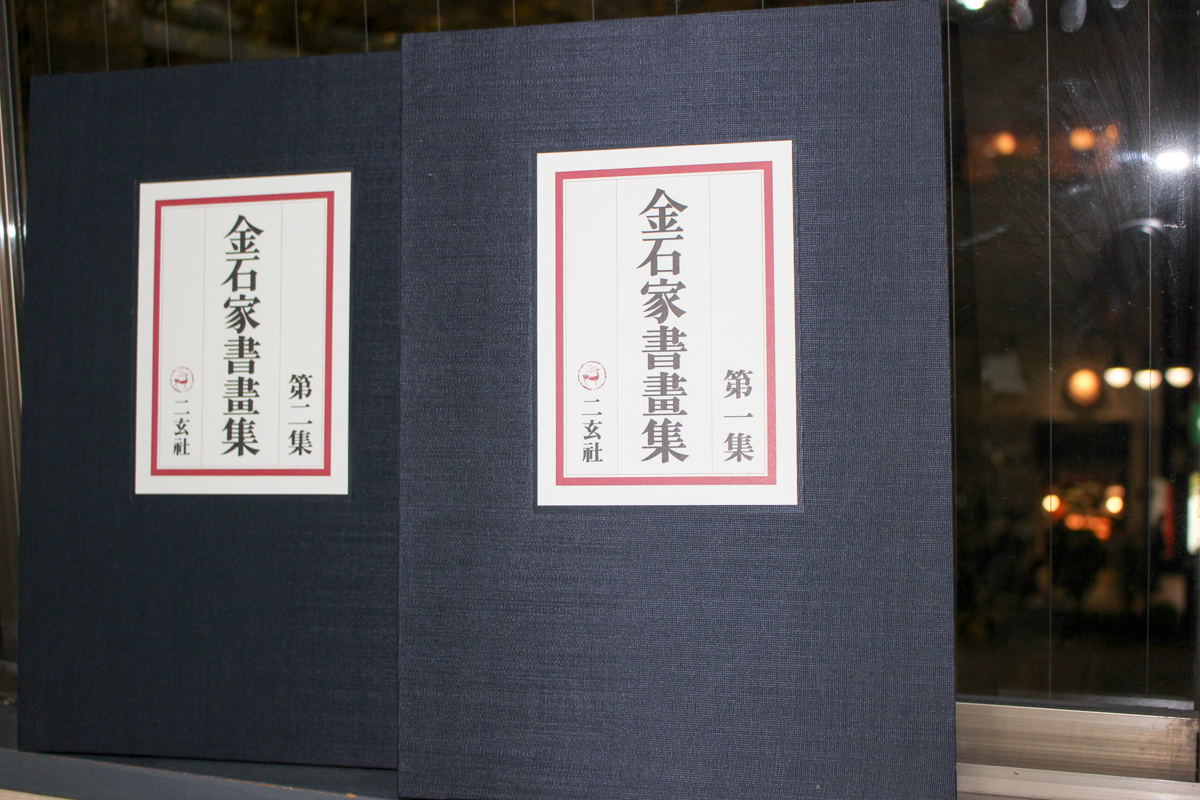 第二集
金石家書畫集
二玄社
第一集
金石家書畫集
二玄社